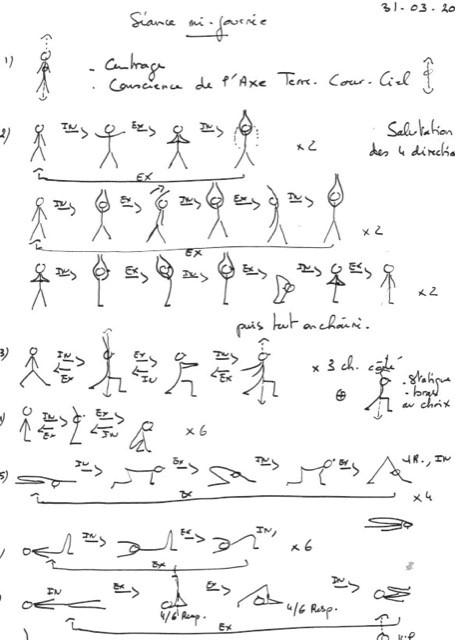 31.03.20
Séance mi-journée
1)
- Centrage
. Conscience de l'Axe Terre. Cœur. Ciel
2)
IN EX IN
x2
Salutation
des 4 directio
EX
IN EX IN EX IN
x2
EX
IN EX IN EX IN EX
x2
puis tout enchaîné.
3)
IN EX IN EX
EX IN EX
x 3 ch. côté
. Statique
. bras
au choix
IN EX
EX IN
x6
5)
IN EX IN EX 4R., IN
EX
x4
IN EX IN,
x6
EX
IN EX EX IN
4/6 Resp. 4/6 Resp.
EX